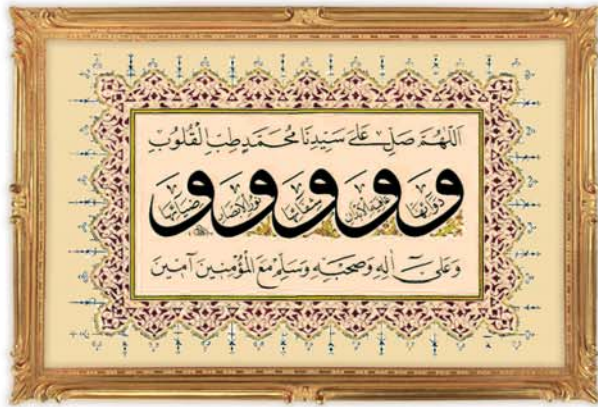 اَللّٰهُمَّ صَلِّ عَلٰى سَيِّدِنَا مُحَمَّدٍ طِبِّ الْقُلُوبِ
وَدَوَائِهَا وَعَافِيَةِ الْاَبْدَانِ وَشِفَائِهَا وَنُورِ الْاَبْصَارِ وَضِيَائِهَا
وَعَلٰى اٰلِهِ وَصَحْبِهِ وَسَلِّمْ مَعَ الْمُؤْمِنِينَ آمِينَ